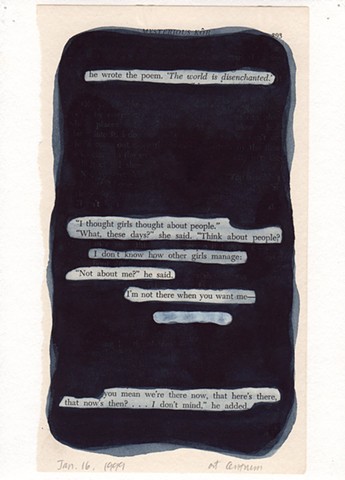 he wrote the poem. 'The world is disenchanted.'
"I thought girls thought about people."
"What, these days?" she said. "Think about people?
I don't know how other girls manage:
"Not about me?" he said.
I'm not there when you want me—
you mean we're there now, that here's there,
that now's then? . . . I don't mind," he added.
Jan. 16, 1999
At